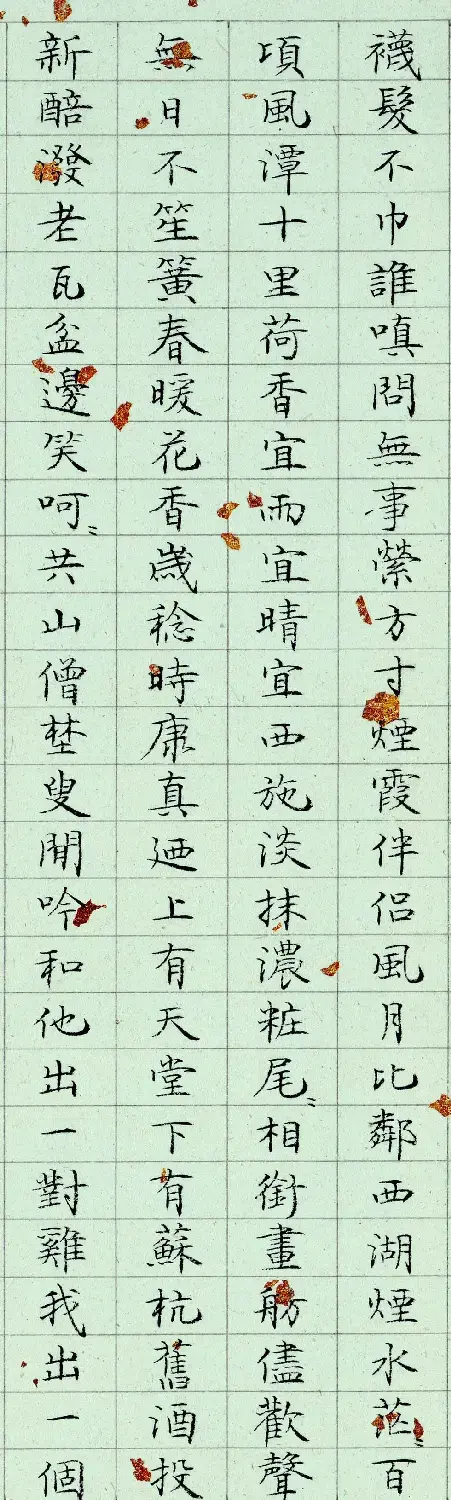 襪髮不巾誰嗔問無事縈方寸煙霞伴侶風月比鄰西湖煙水茫〻百
頃風潭十里荷香宜雨宜晴宜西施淡抹濃粧尾〻相銜畫舫儘歡聲
無日不笙簧春暖花香歲稔時康真廼上有天堂下有蘇杭舊酒投
新醅潑老瓦盆邊笑呵〻共山僧埜叟閒吟和他出一對雞我出一個